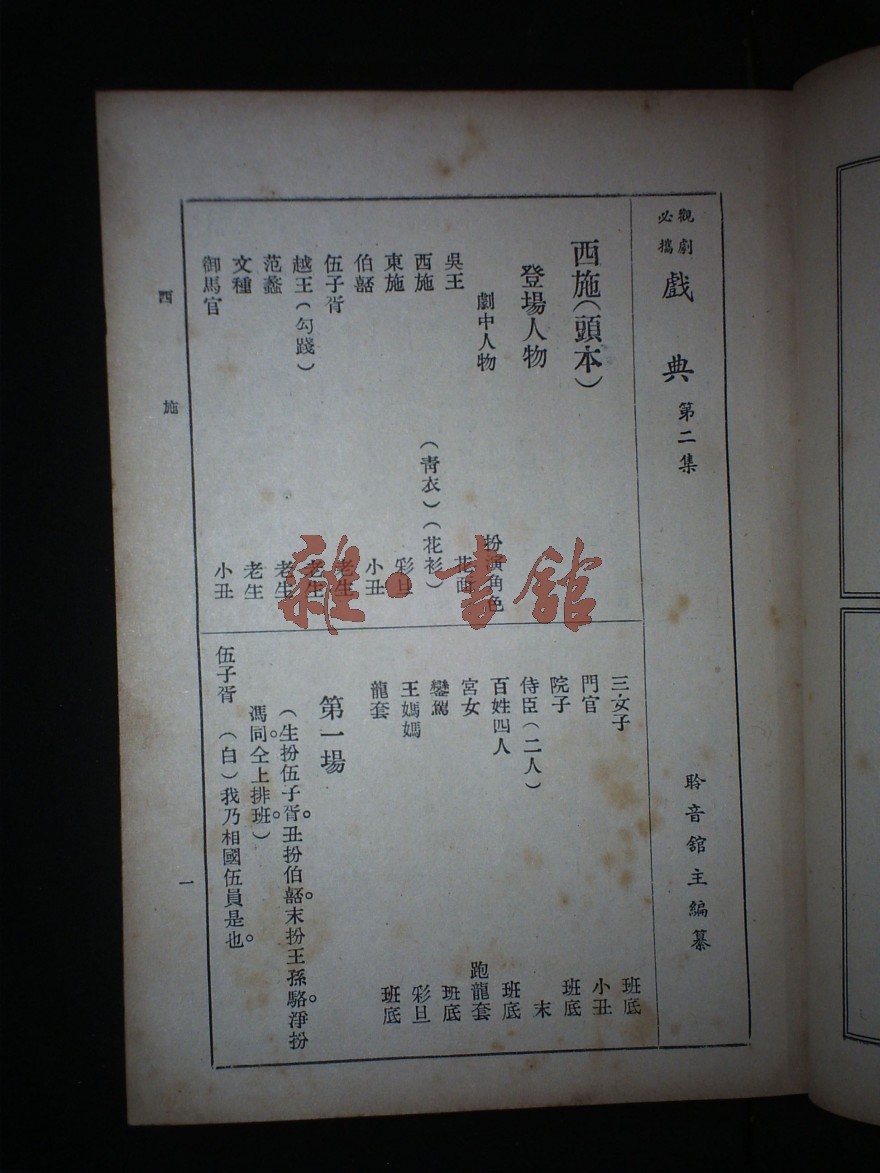 觀劇必攜 戲典 第二集 聆音館主編纂
西施(頭本)
登場人物
劇中人物 扮演角色
吳王 花面
西施 (青衣)(花衫)
東施 彩旦
伯嚭 小丑
伍子胥 老生
越王(勾踐) 老生
范蠡 老生
文種 老生
御馬官 小丑
三女子 班底
門官 小丑
院子 班底
侍臣(二人) 末
百姓四人 班底
宮女 跑龍套
班底
王媽媽 彩旦
龍套 班底
第一場
(生扮伍子胥。丑扮伯嚭。末扮王孫駱。淨扮
馮同。仝上排班。)
伍子胥 (白)我乃相國伍員是也。
西施
一
雜·書館